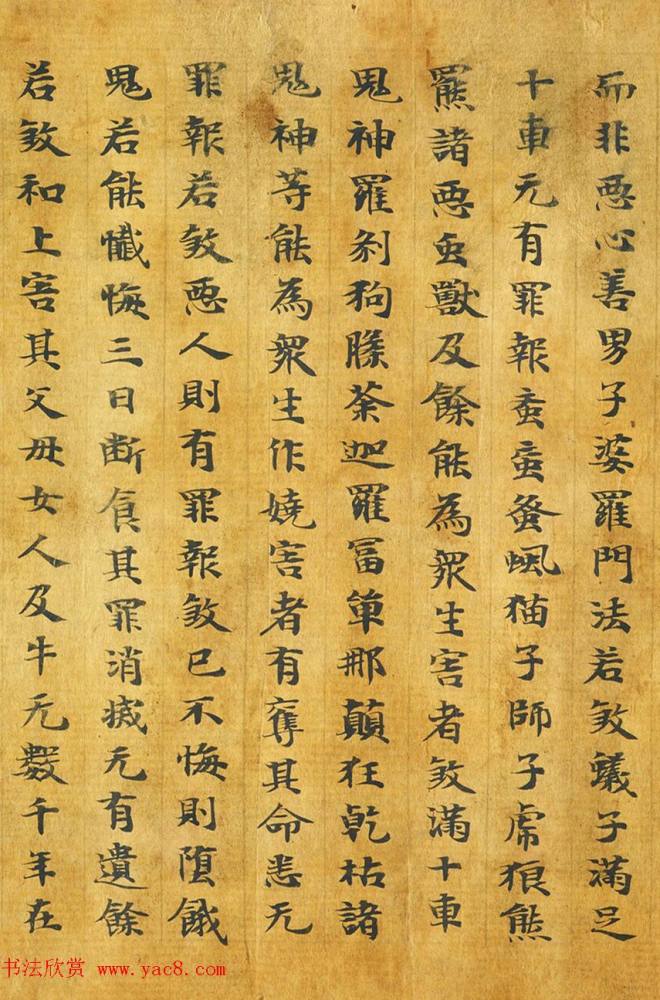 而非惡心善男子婆羅門法若煞蟻子滿足
十車无有罪報蚉蝱蚤虱猫子師子虎狼熊
羆諸惡虫獸及餘能為衆生害者煞滿十車
鬼神羅刹狗膝荼迦羅富單那顛狂乾枯諸
鬼神等能為衆生作嬈害者有奪其命悉无
罪報若煞惡人則有罪報煞已不悔則堕餓
鬼若能懺悔三日断食其罪消㓕无有遺餘
若煞和上害其父母女人及牛无數千年在
书法欣赏 www.yac8.com